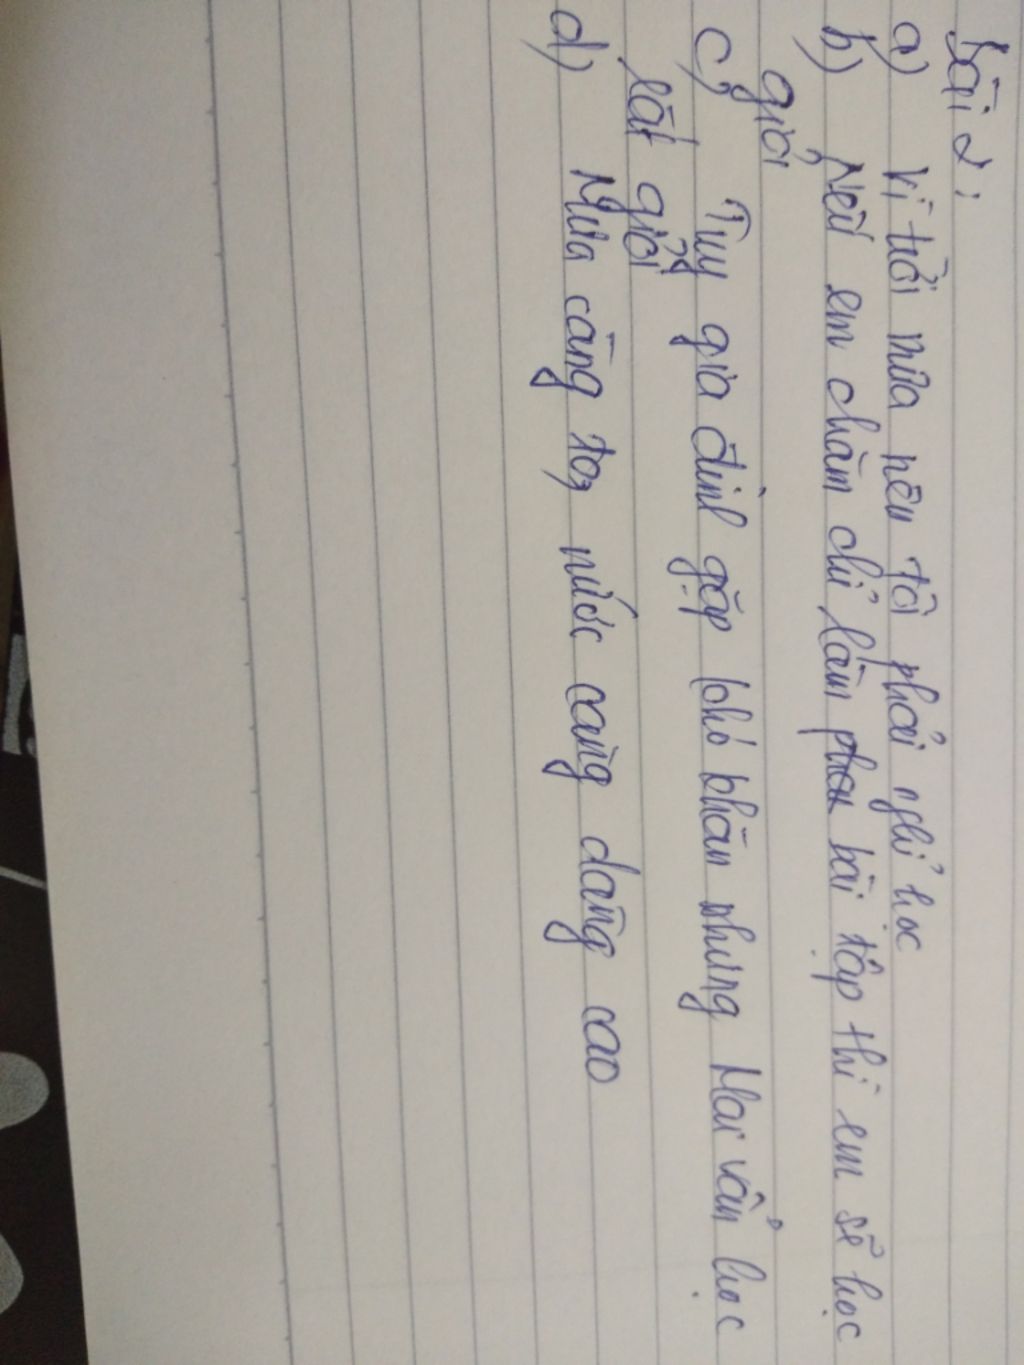 Bài 2:
a) Vì trời mưa nên tôi phải nghỉ học
b) Nếu em chăm chỉ làm bài tập thì em sẽ học
giỏi
c) Tuy gia đình gặp khó khăn nhưng Mai vẫn học
rất giỏi
d) Mưa càng to, nước càng dâng cao